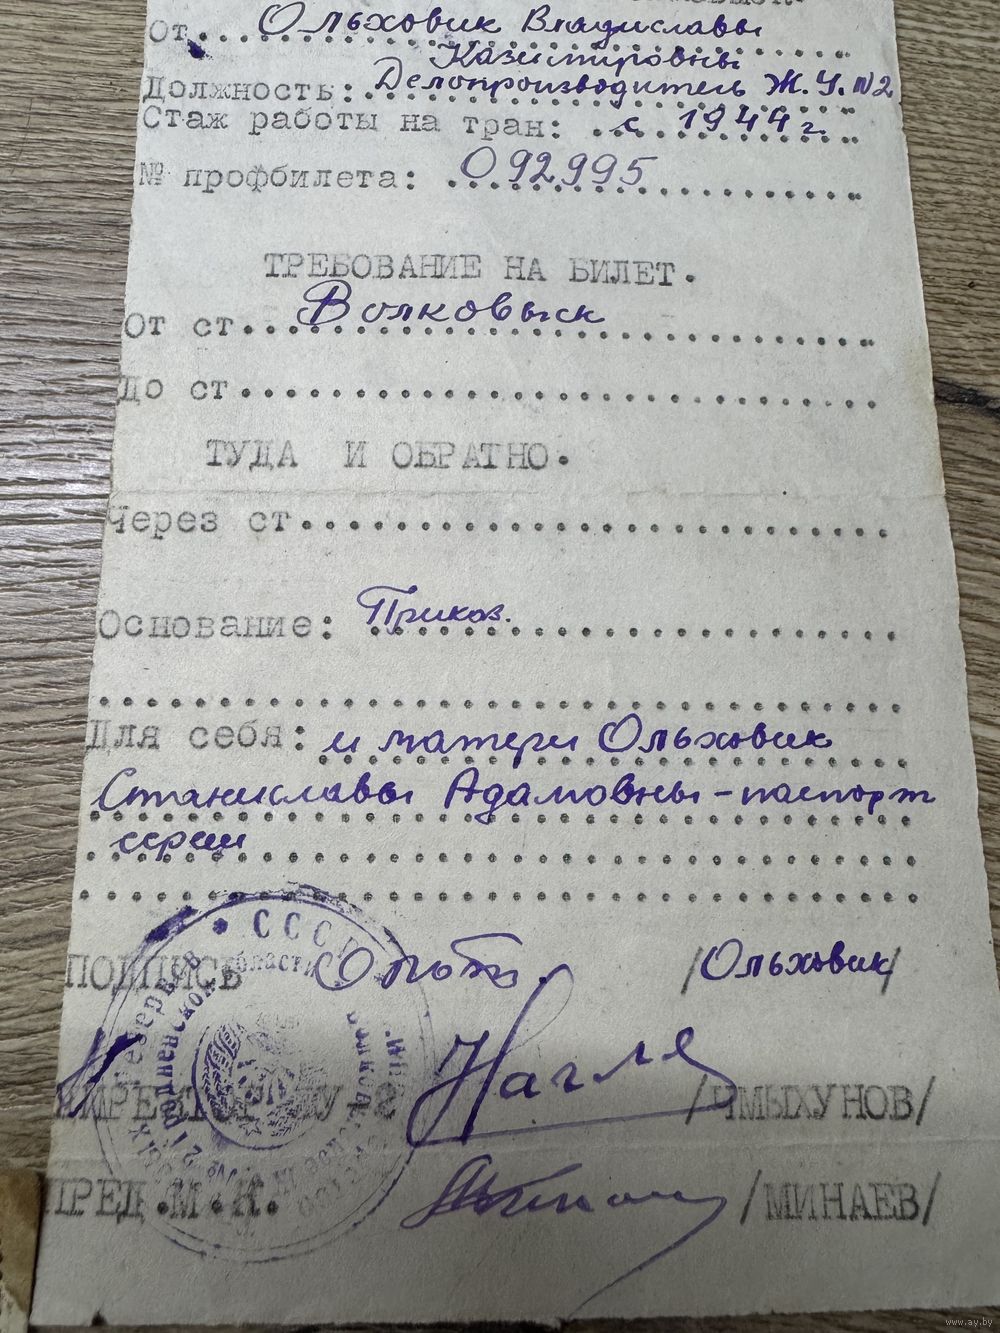 От Ольховик Владиславы
Казимировны
Должность: Делопроизводитель Ж.У. №2
Стаж работы на тран: с 1944 г.
№ профбилета: 092995
ТРЕБОВАНИЕ НА БИЛЕТ.
От ст. Волковыск
До ст
ТУДА И ОБРАТНО.
Через ст
Основание: Приказ.
Для себя: и матери Ольховик
Станиславы Адамовны - паспорт
серии
ПОДПИСЬ /Ольховик/
СССР
Гродненской области
№ 2
/ЧМЫХУНОВ/
ПРЕД.М.К. /МИНАЕВ/
www.ay.by